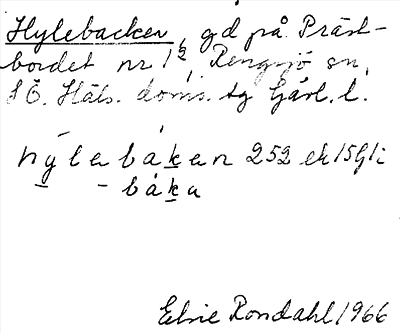 Hylebacken, gd på Präst-
bordet nr 1 2, Rengsjö sn,
SÖ. Häls. doms. tg Gävl. l.
hylabakan 252 ek 15
- baka
Elsie Rondahl 1966